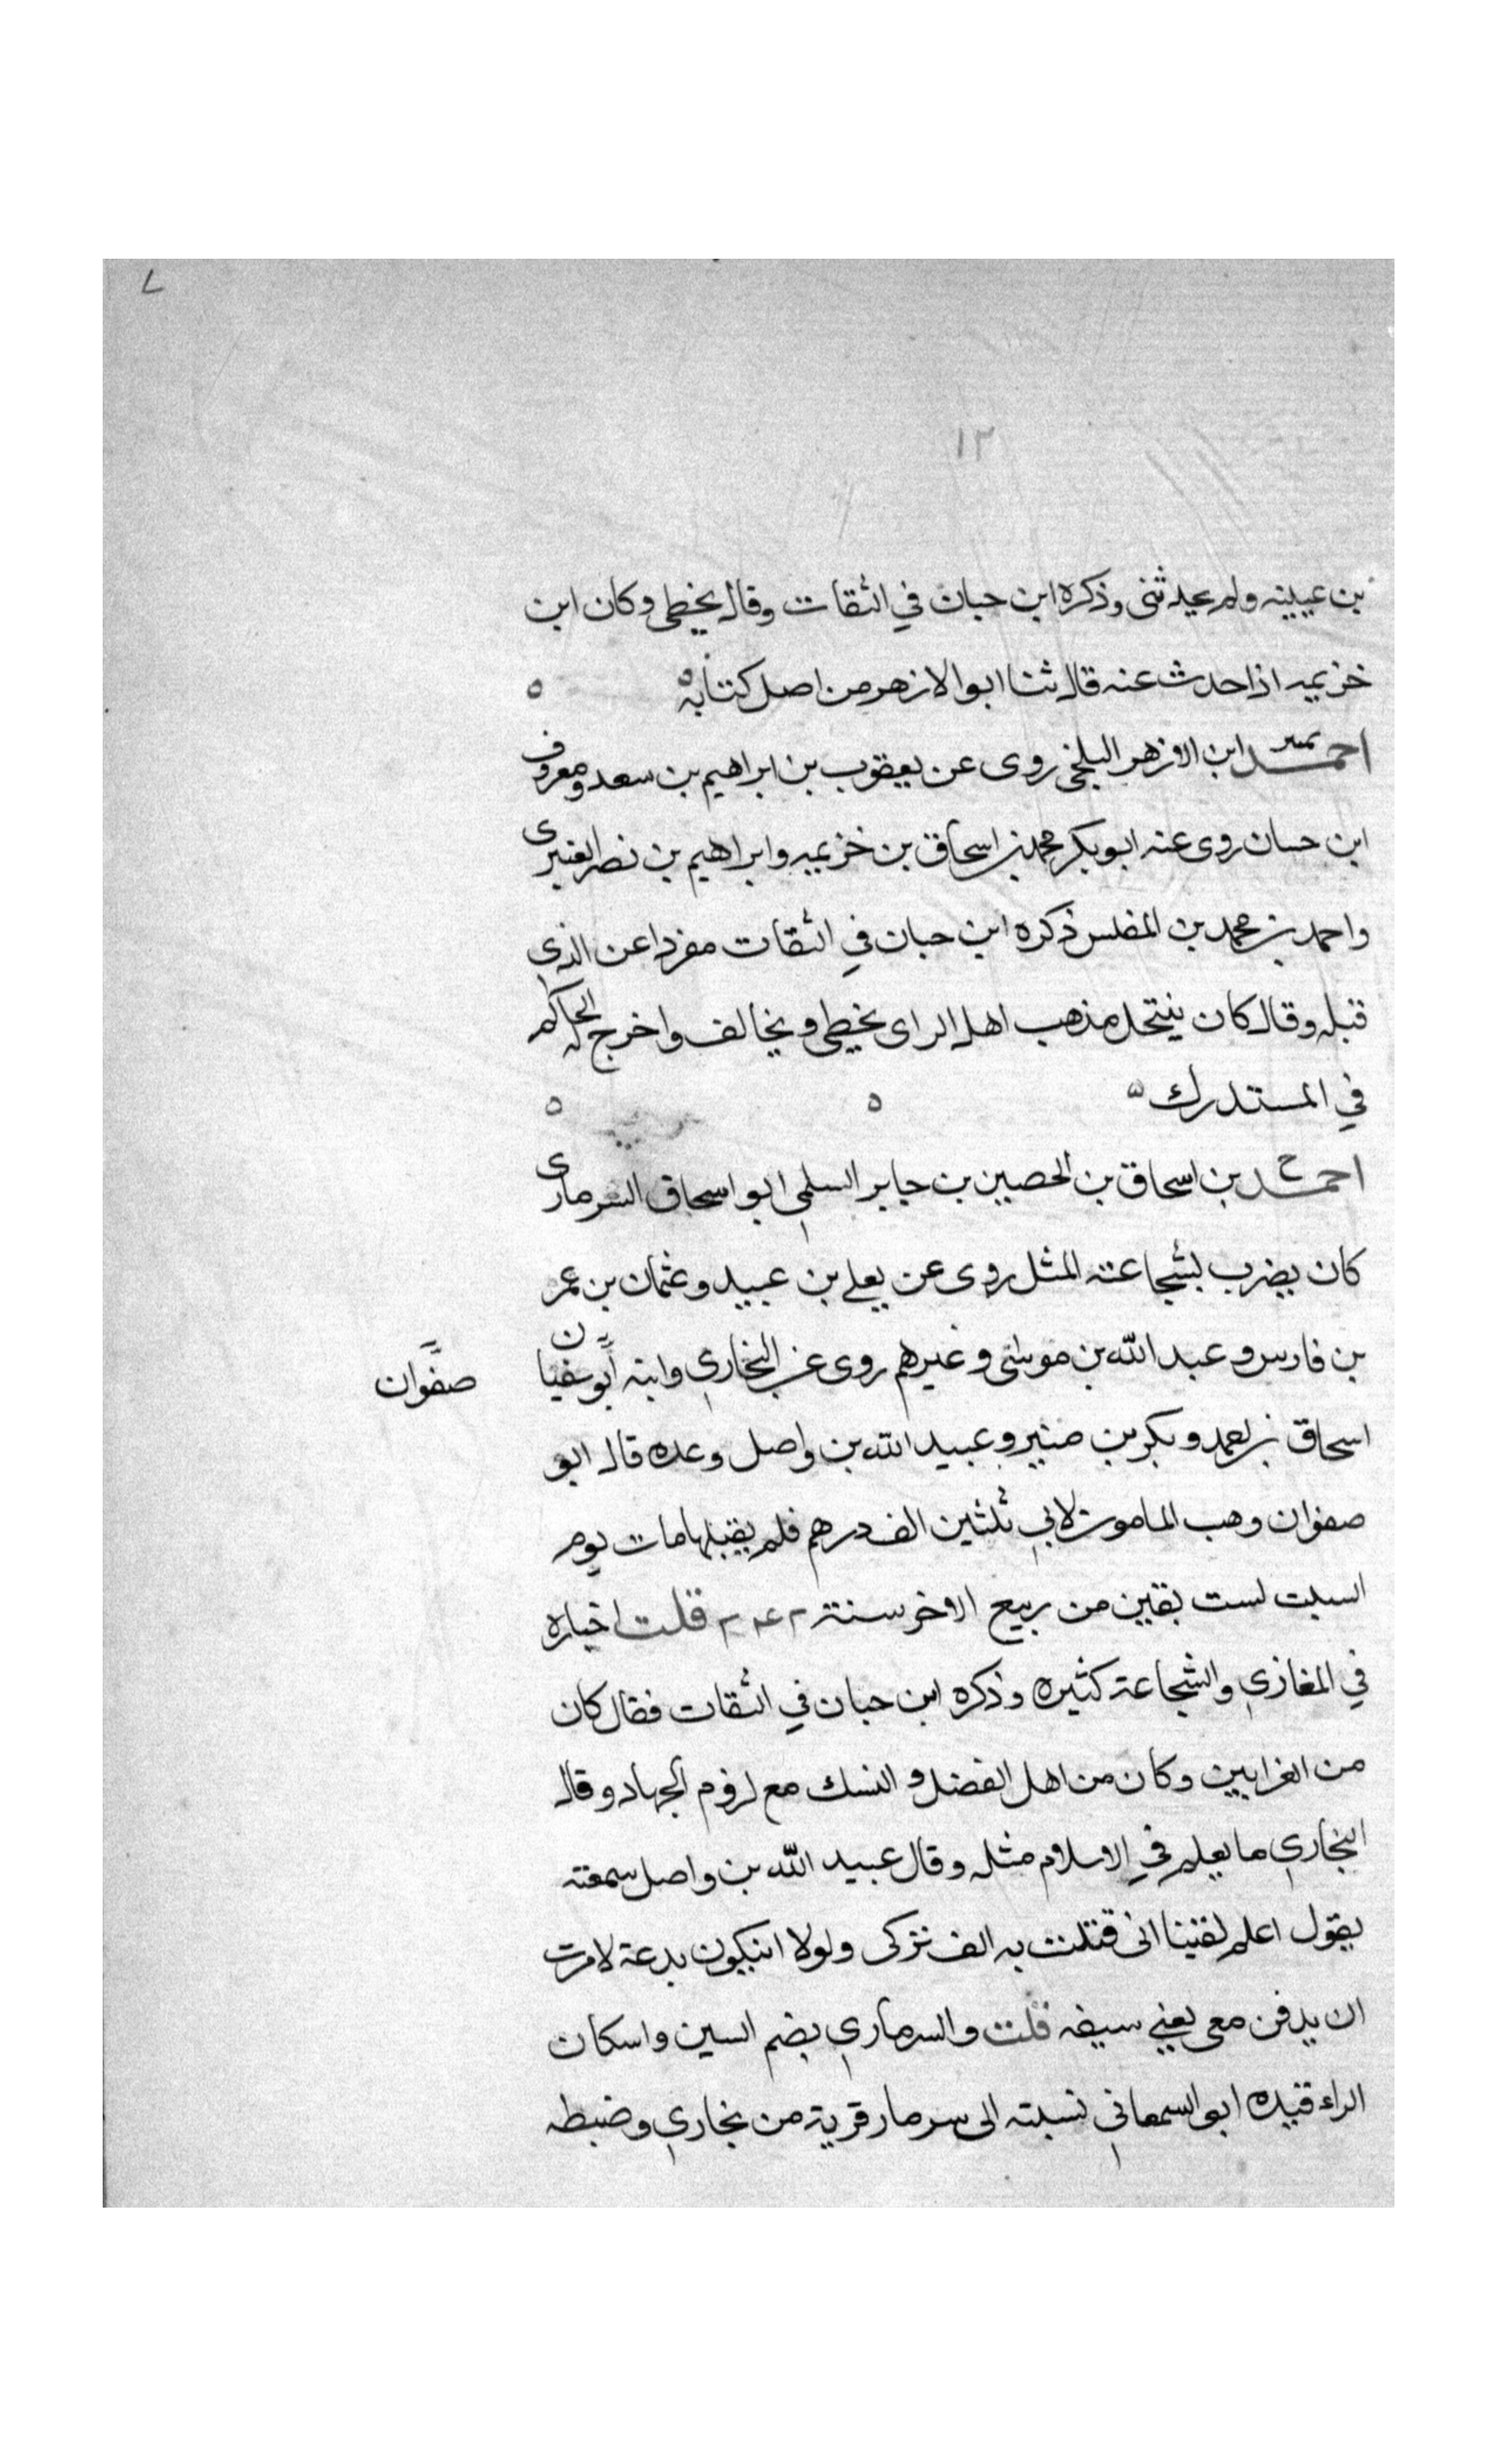 ٧
١٢
بن عيينه ولم يحدثنى وذكره ابن حبان في الثقات وقال يخطى وكان ابن
خزيمه اذا حدث عنه قال ثنا ابو الازهر من اصل كتابه
احمد ابن الازهر البلخي روى عن يعقوب بن ابراهيم بن سعد ومعروف
ابن حسان روى عنه ابو بكر محمد بن اسحاق بن خزيمه وابراهيم بن نصر العنبرى
واحمد بن محمد بن المغلس ذكره ابن حبان في الثقات مفردا عن الذى
قبله وقال كان ينتحل مذهب اهل الراى يخطى ويخالف واخرج له الحاكم
في المستدرك
احمد بن اسحاق بن الحصين بن جابر السلمي ابو اسحاق السرمارى
كان يضرب بشجاعته المثل روى عن يعلى بن عبيد وعثمان بن عمر
بن فارس وعبد الله بن موسى وغيرهم روى عنه البخاري وابنه ابو سفيان
صفوان
اسحاق بن احمد وبكر بن منير وعبيد الله بن واصل وعده قال ابو
صفوان وهب المامون لابي ثلثين الف درهم فلم يقبلها مات يوم
السبت لست بقين من ربيع الاخر سنة ٢٤٢ قلت اخباره
في المغازي والشجاعة كثيره وذكره ابن حبان في الثقات فقال كان
من الغزايين وكان من اهل الفضل و النسك مع لزوم الجهاد وقال
البخاري ما يعلم في الاسلام مثله وقال عبيد الله بن واصل سمعته
يقول اعلم يقينا انى قتلت به الف تركى ولولا ان يكون بدعة لامرت
ان يدفن معي يعني سيفه قلت والسرماري بضم السين واسكان
الراء قيده ابو السمعاني نسبته الى سرمار قرية من بخاري وضبطه